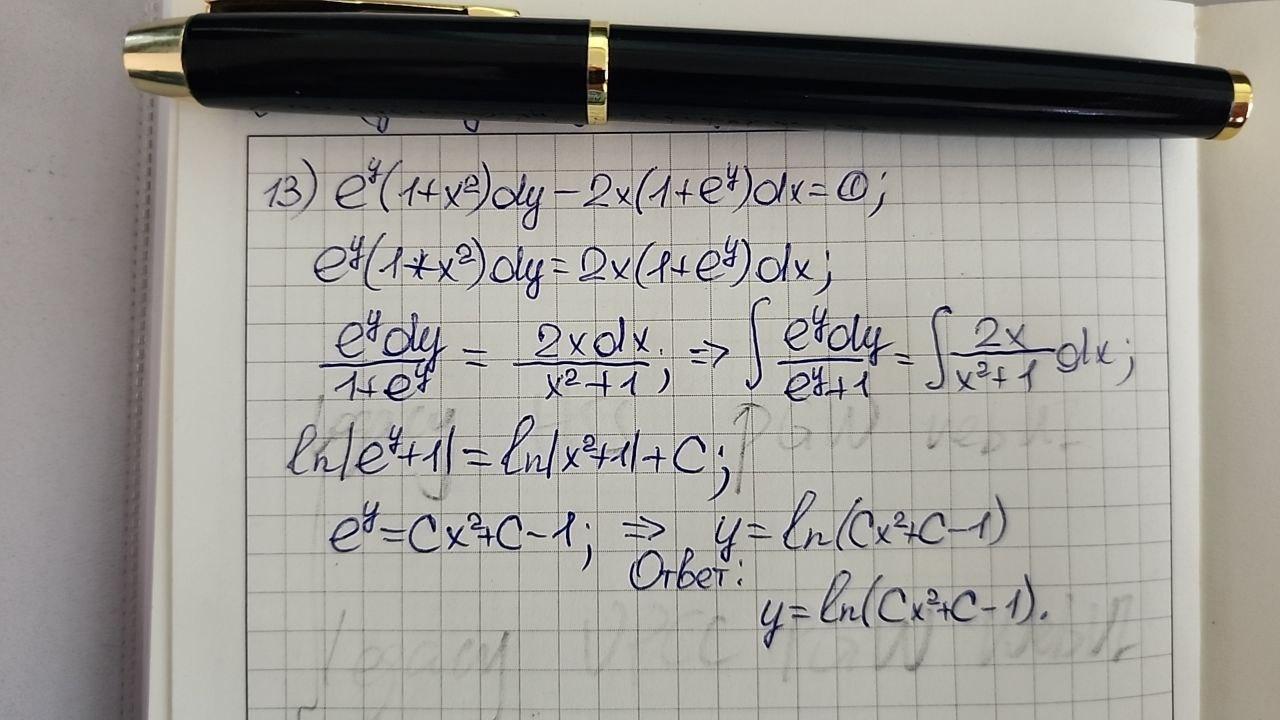 13) e^y(1+x²)dy - 2x(1+e^y)dx = 0;
e^y(1+x²)dy = 2x(1+e^y)dx;
e^y dy / 1+e^y = 2xdx / x²+1; ⇒ ∫ e^y dy / e^y+1 = ∫ 2x / x²+1 dx;
ln|e^y+1| = ln|x²+1| + C;
e^y = Cx²+C-1; ⇒ y = ln(Cx²+C-1)
Ответ:
y = ln(Cx²+C-1).